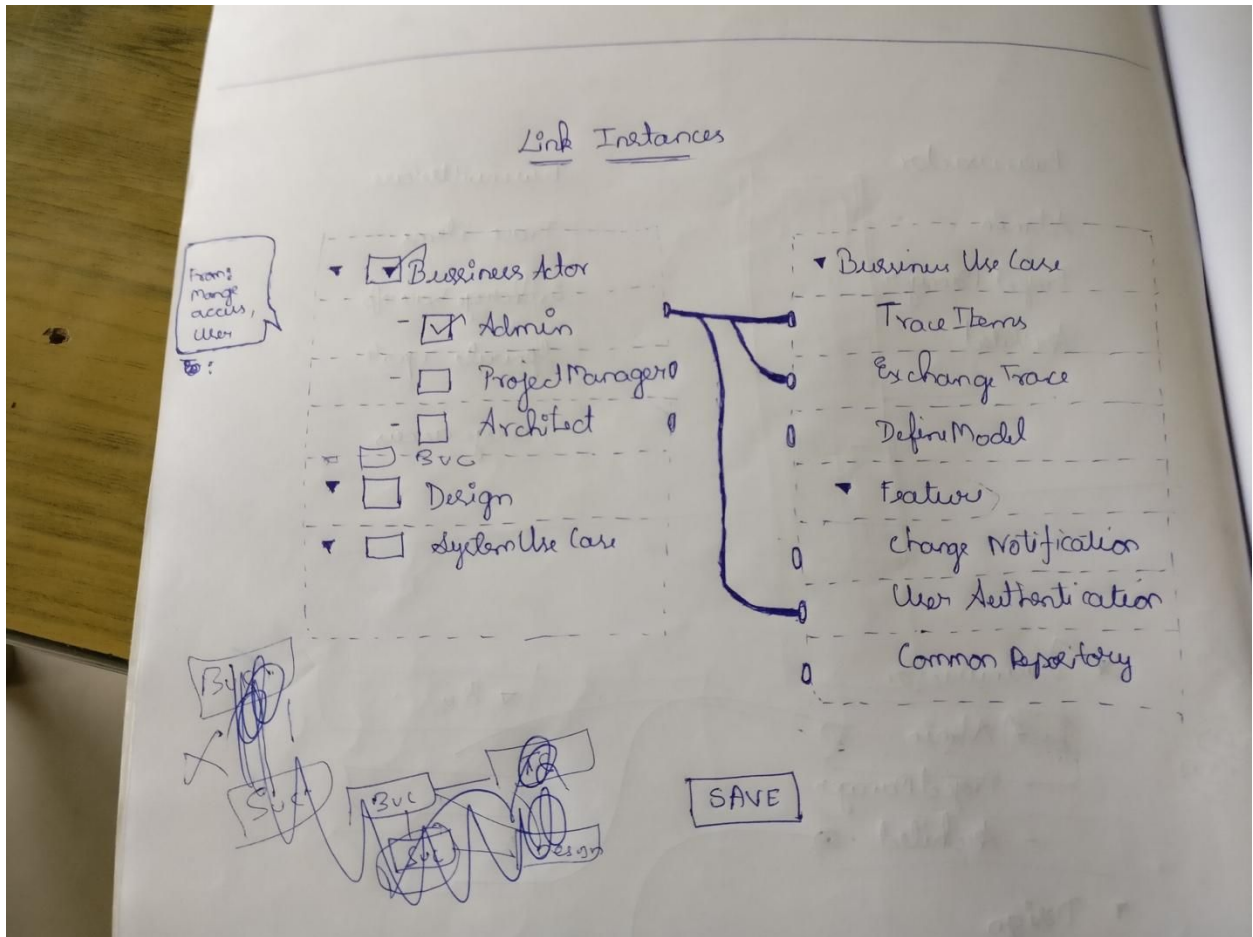 Link Instances
From:
Mange
access,
User
Bussiness Actor
- Admin
- Project Manager
- Architect
BUC
Design
System Use Case
Bussiness Use Case
Trace Items
Exchange Trace
Define Model
Feature
Change Notification
User Authentication
Common Repository
BUC
SUC
BUC
SUC
Design
SAVE